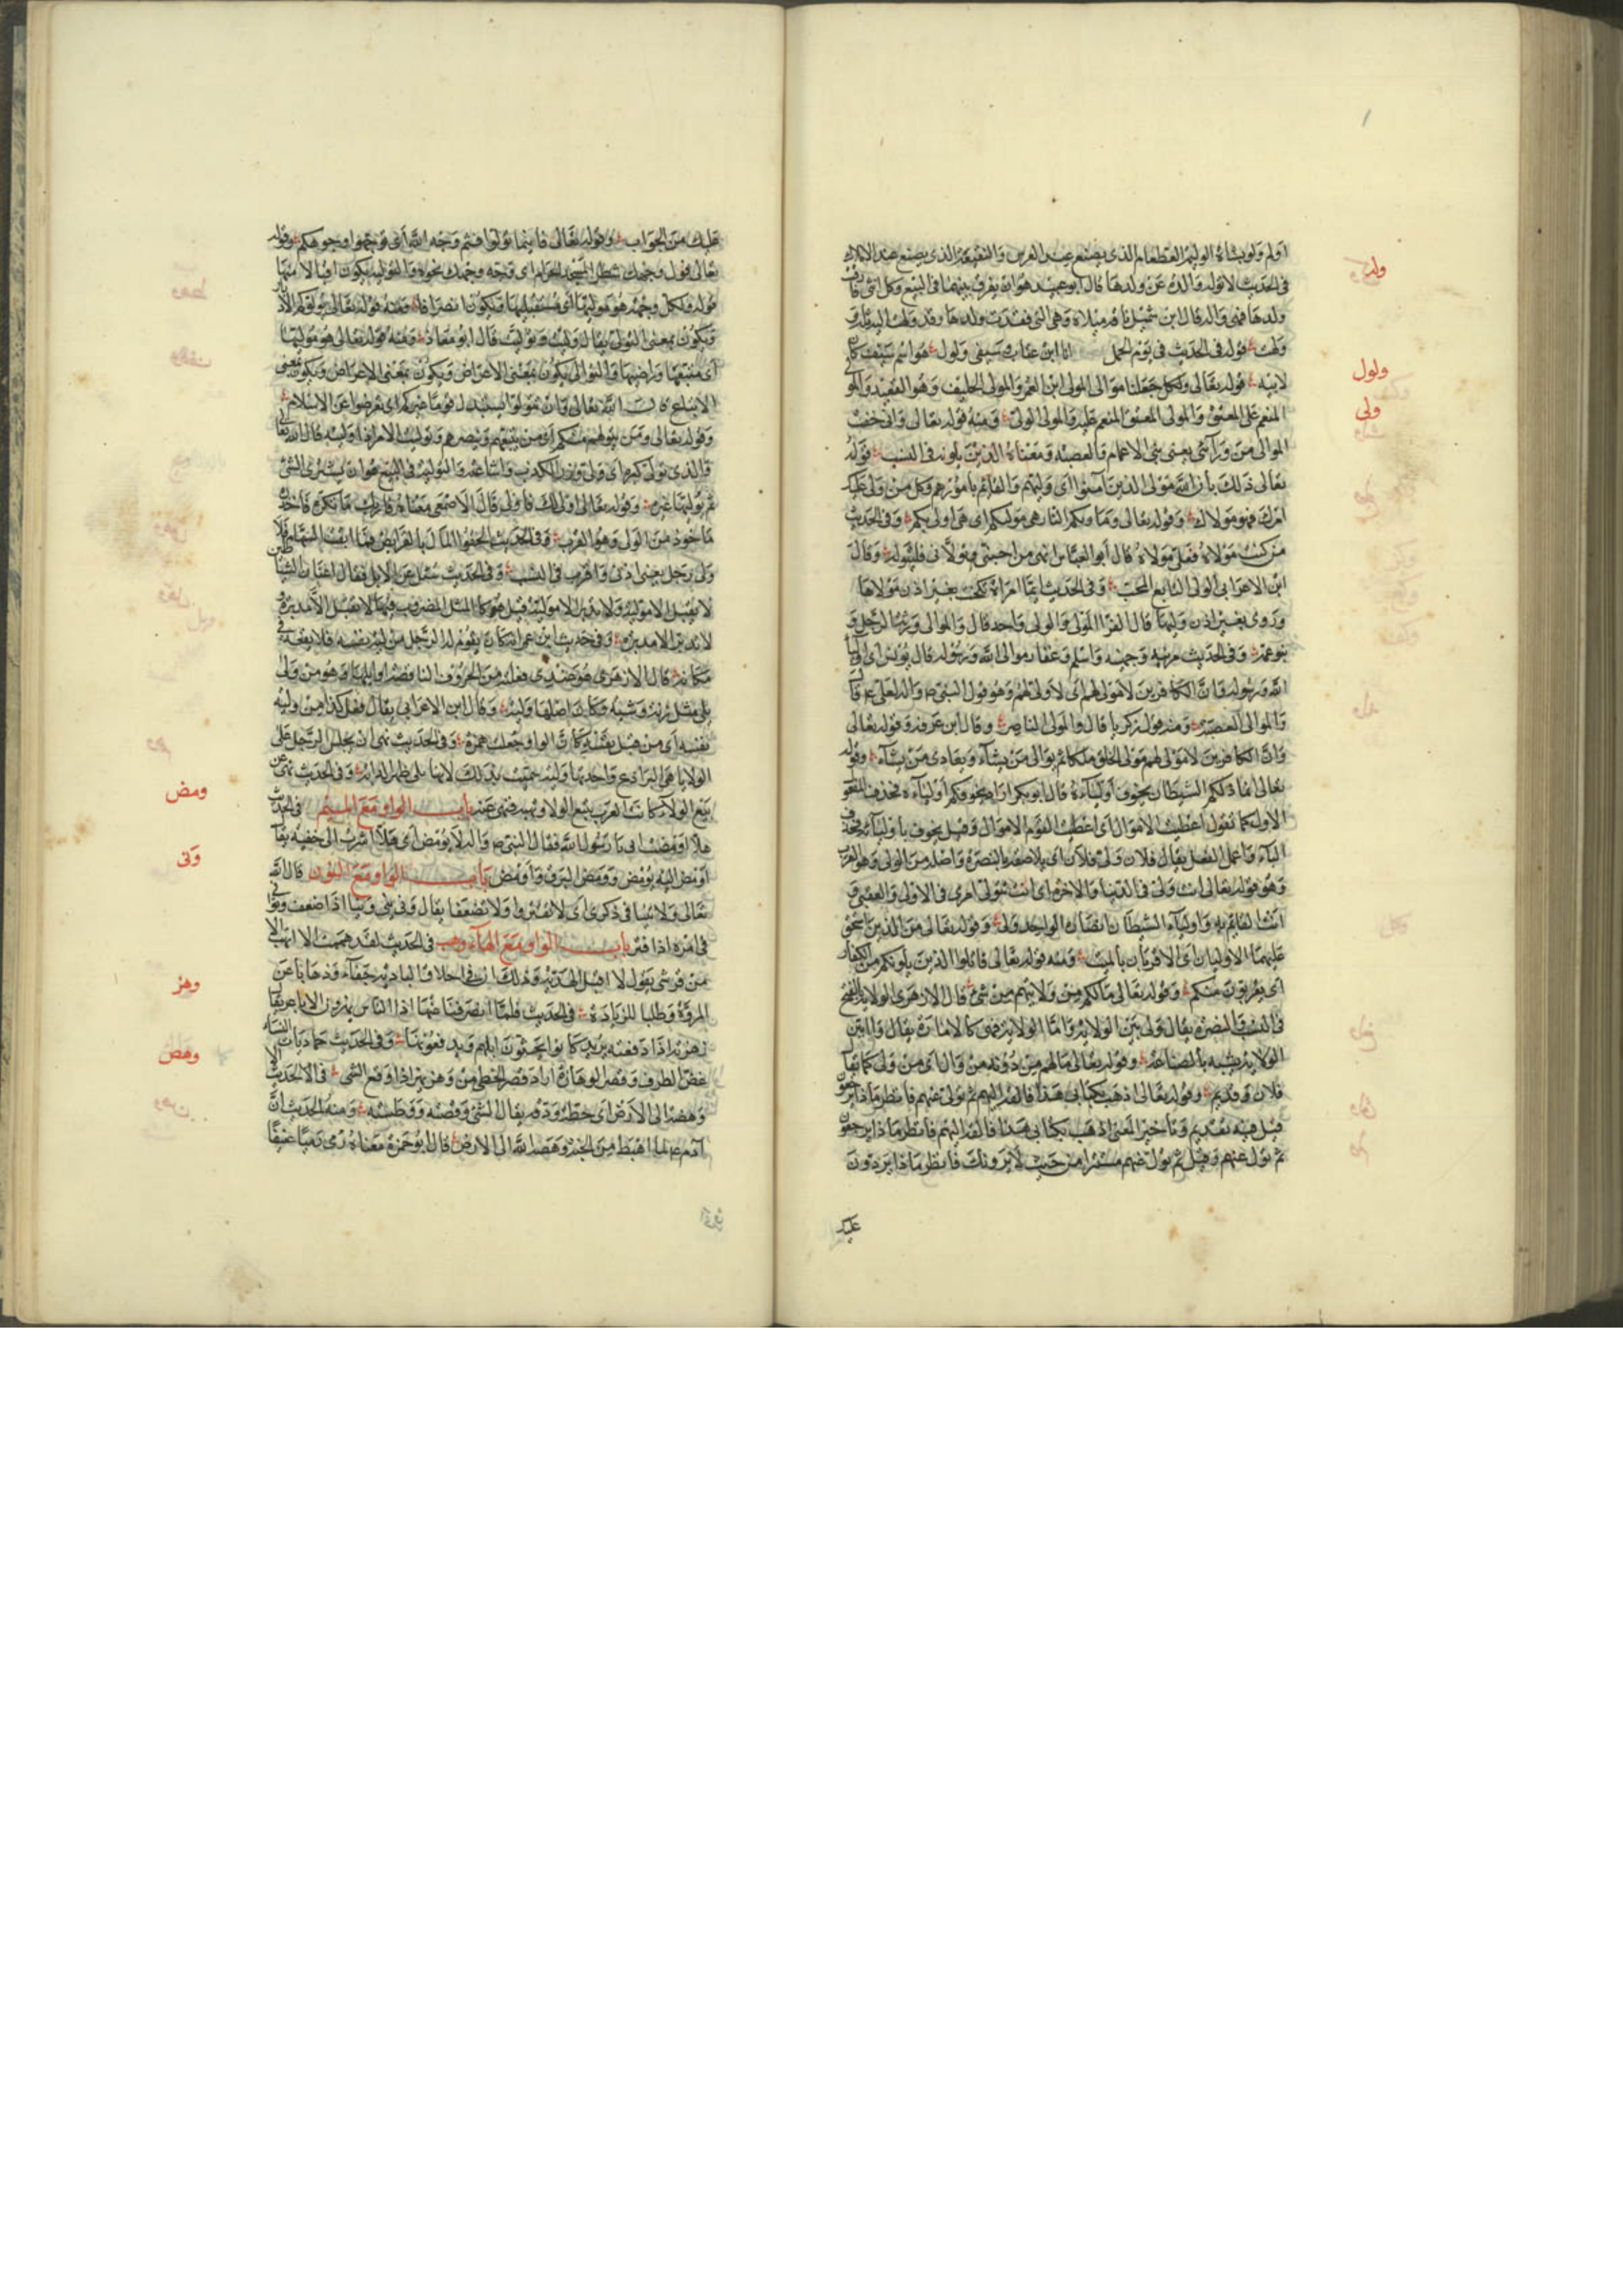 اولم ولو بشاة الوليمة الطعام الذي يصنع عند العرس والنقيعة الذي يصنع عند الاملاك
ولد
في الحديث لا توله والدة عن ولدها قال ابو عبيد هو ان يفرق بينهما في البيع وكل انثى فارقت
ولدها فهي واله قال ابن شميل ناقة ميلاه وهي التي فقدت ولدها وقد ولهت اليه تله
ولهت قوله في الحديث في يوم الجمل انا ابن عتاب وسيفي ولول هو اسم سيف كان
ولول
لابيه قوله تعالى ولكل جعلنا موالى المولى ابن العم والمولى الحليف وهو العقيد والمولى
ولى
المنعم على المعتق والمولى المعتق المنعم عليه والمولى الولي ومنه قوله تعالى واني خفت
الموالي من ورآئي يعني بني الاعمام والعصبة ومعناه الذين يلونه في النسب قوله
تعالى ذلك بأن الله مولى الذين آمنوا اي وليهم والقائم بأمورهم وكل من ولي عليك
امرك فهو مولاك وقوله تعالى ومأويكم النار هي موليكم اي هي اولى بكم وفي الحديث
من كنت مولاه فعلي مولاه قال ابو العباس اي من احبني وتولاني فليتوله وقال
ابن الاعرابي المولى التابع المحب وفي الحديث ايما امرأة نكحت بغير اذن مولاها
وروى بغير اذن وليها قال الفرا المولى والولي واحد قال والموالي ورثة الرجل و
بنو عمه وفي الحديث مزينة وجهينة واسلم وغفار موالي الله ورسوله قال يونس اي اوليآ
الله ورسوله وان الكافرين لا مولى لهم اي لا ولي لهم وهو قول النبي
والموالي العصبة ومنه قول زكريا قال والمولى الناصر وقال ابن عرفة وقوله تعالى
وان الكافرين لا مولى لهم مولى الخلق ملكا ثم يوالي من يشآء ويعادي من يشآء وقوله
تعالى انما ذلكم الشيطان يخوف اوليآءه قال ابو بكر اراد يخوفكم اوليآءه فحذف المفعول
الاول كما تقول اعطيت الاموال اي اعطيت القوم الاموال وقيل يخوف باوليآئه فحذف
البآء واعمل الفعل يقال فلان ولي فلان اي يلاصقه بالنصرة واصله من الولي وهو القرب
وهو قوله تعالى انت ولي في الدنيا والاخرة اي انت تتولى امري في الاولى والعقبى و
انت القائم به واوليآء الشيطان انصاره الواحد ولي وقوله تعالى من الذين استحق
عليهما الاوليان اي الاقربان بالميت ومنه قوله تعالى قاتلوا الذين يلونكم من الكفار
اي يقربون منكم وقوله تعالى مالكم من ولايتهم من شئ قال الازهري الولاية بالفتح
في النسب والنصرة يقال ولي بين الولاية واما الولاية فهي كالامارة يقال وال بين
الولاية يشبه بالصناعة وقوله تعالى مالهم من دونه من وال اي من ولي كما يقال
فلان وقديم وقوله تعالى اذهب بكتابي هذا فالقه اليهم ثم تول عنهم فانظر ماذا يرجعون
قيل فيه تقديم وتأخير المعنى اذهب بكتابي هذا فالقه اليهم فانظر ماذا يرجعون
ثم تول عنهم وقيل ثم تول عنهم مستترا من حيث لا يرونك فانظر ماذا يردون
عليك
عليك من الجواب وقوله تعالى فاينما تولوا فثم وجه الله اي توجهوا وجوهكم وقوله
تعالى فول وجهك شطر المسجد الحرام اي وجه وجهك نحوه والتولية يكون اقبالا منها
قوله ولكل وجهة هو موليها اي مستقبلها ويكون انصرافا ومنه قوله تعالى يولوكم الادبار
ويكون بمعنى التولي يقال وليت وتوليت قال ابو معاذ ومنه قوله تعالى هو موليها
اي متبعها وراضيها والتولي يكون بمعنى الاعراض ويكون بمعنى
الاتباع قال الله تعالى وان تتولوا يستبدل قوما غيركم اي تعرضوا عن الاسلام
وقوله تعالى ومن يتولهم منكم اي من يتبعهم وينصرهم وتوليت الامر اذا وليته قال الله تعالى
والذي تولى كبره اي ولي وزر الكذب واشاعته والتولية في البيع هو ان يشتري الشئ
ثم يوليها غيره وقوله تعالى اولى لك فاولى قال الاصمعي معناه قاربك ما تكره فاحذر
ماخوذ من الولي وهو القرب وفي الحديث الحقوا المال بالفرايض فما ابقت السهام فلا
ولى رجل يعني ادنى واقرب في النسب وفي الحديث سئل عن الابل فقال اعنان الشياطين
لا يقبل الا مولية ولا يدبر الا مولية قيل هو كالمثل المضروب فيها لا يقبل الا مدبرة و
لا يدبر الا مدبرة وفي حديث ابن عمر انه كان يقوم له الرجل من لية نفسه فلا يقعد في
مكانه قال الازهري هو عندي فعلة من الحروف الناقصة اوايلها وهو من ولى
يلي مثل زنة وشبه وكان اصلها ولية وقال ابن الاعرابي يقال فعل كذا من ولية
نفسه اي من قبل نفسه كان الواو جعلت همزة وفي الحديث نهى ان يجلس الرجل على
الولايا هي البرادع واحدتها ولية سميت بذلك لانها تلي ظهر الدابة وفي الحديث نهى عن
بيع الولآء كانت العرب تبيع الولاء وتهبه فنهى عنه باب الواو مع الميم في الحديث
ومض
هلا اومضت الي يا رسول الله فقال النبي والله لا يومض اي هلا اشرت الي خفية يقال
اومض اليه يومض وومض البرق واومض باب الواو مع النون قال الله
ونى
تعالى ولا تنيا في ذكري اي لا تفترا ولا تضعفا يقال ونى يني ونيا اذا ضعف وتوانى
في امره اذا فتر باب الواو مع الهآء وهب في الحديث لقد هممت الا اتهب الا
من قرشي يقول لا اقبل الهدية وذلك ان في اخلاق البادية جفآء وذهابا عن
المروة وطلبا للزيادة في الحديث فلما انصرفنا عنها اذا الناس يهزون الاباعر يقال
وهز
وهزته اذا دفعته يريد كانوا يحثون ابلهم ويدفعونها وفي الحديث حماديات النسآء
غض الطرف وقصر الوهازة اراد قصر الخطى في الحديث
وهص
وهصه الى الارض اي حطه ودقه يقال وهصت الشئ ووقصته ووطسته ومنه الحديث ان
آدم لما اهبط من الجنة وهصه الله الى الارض قال ابو حمزة معناه رمى رميا عنيفا